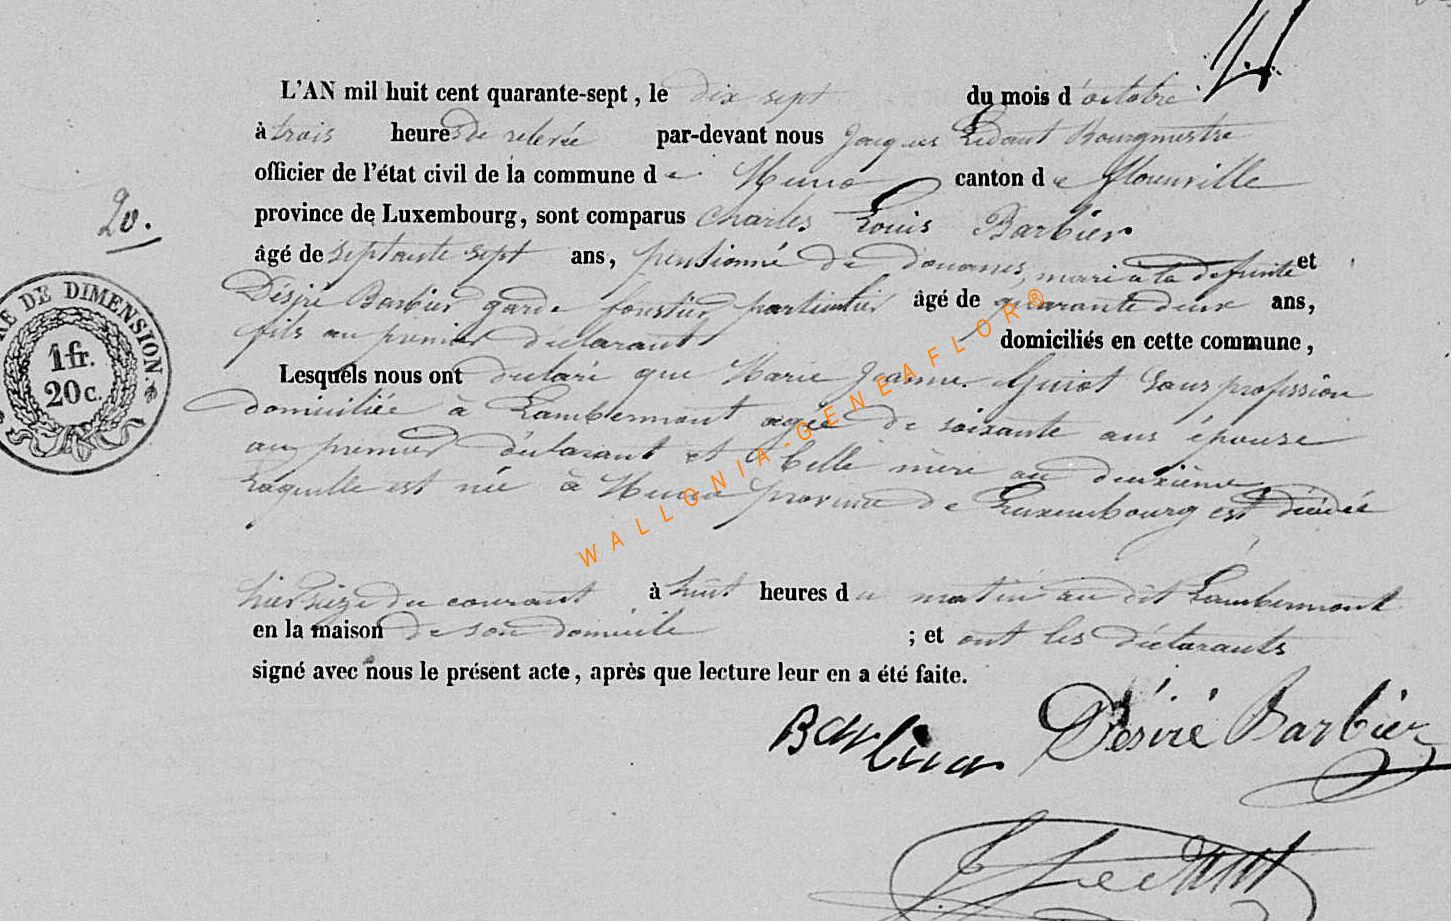 L'AN mil huit cent quarante-sept, le dix sept du mois d'octobre
à trois heures de relevée par-devant nous Jacques Bourgmestre
officier de l'état civil de la commune de Muno canton de Florenville
province de Luxembourg, sont comparus Charles Louis Barbier
âgé de septante sept ans, pensionné de douanes, mari à la défunte et
Désiré Barbier garde forestier particulier âgé de quarante deux ans,
fils au premier déclarant domiciliés en cette commune,
Lesquels nous ont déclaré que Marie Jeanne Guiot sans profession
domiciliée à Lambermont agée de soixante ans épouse
au premier déclarant et belle mère au deuxième,
laquelle est née à Muno province de Luxembourg est décédée
hier seize du courant à huit heures du matin au dit Lambermont
en la maison de son domicile ; et ont les déclarants
signé avec nous le présent acte, après que lecture leur en a été faite.
20.
DE DIMENSION.
1 fr.
20 c.
WALLONIA-GENEAFLOR®
Barbier Désiré Barbier